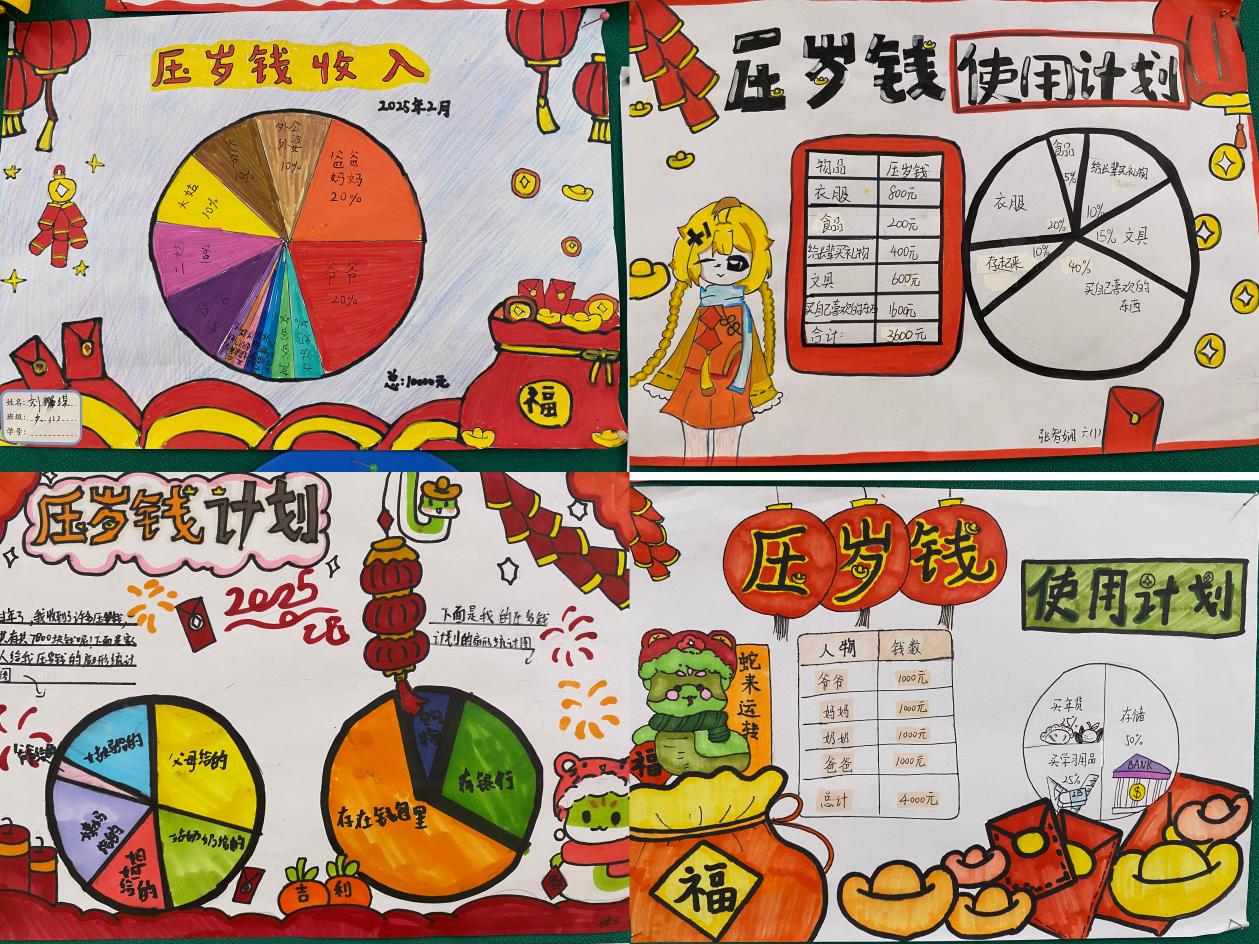 压岁钱收入
2025年2月
外公
外婆
10%
爸爸
妈妈
20%
10%
大姑
10%
10%
爷爷
20%
总:10000元
姓名:
班级:
学号:
福
压岁钱使用计划
物品 压岁钱
衣服 800元
食品 200元
给长辈买礼物 400元
文具 600元
买自己喜欢的东西 1600元
合计: 3600元
食品
5%
给长辈买礼物
10%
衣服
20%
15% 文具
10%
存起来
40%
买自己喜欢的
东西
张智娴 六(1)
压岁钱计划
2025
过年了,我收到了许多压岁钱
共有7800块钱呢!下面是家
人给我压岁钱的扇形统计
图
下面是我的压岁钱
计划的扇形统计图
父母给的
购物
存银行
存在钱包里
吉利
压岁钱
使用计划
蛇来运转
福
人物 钱数
爷爷 1000元
妈妈 1000元
奶奶 1000元
爸爸 1000元
总计 4000元
买年货
25%
存储
50%
买学习用品
25%
BANK
$
福